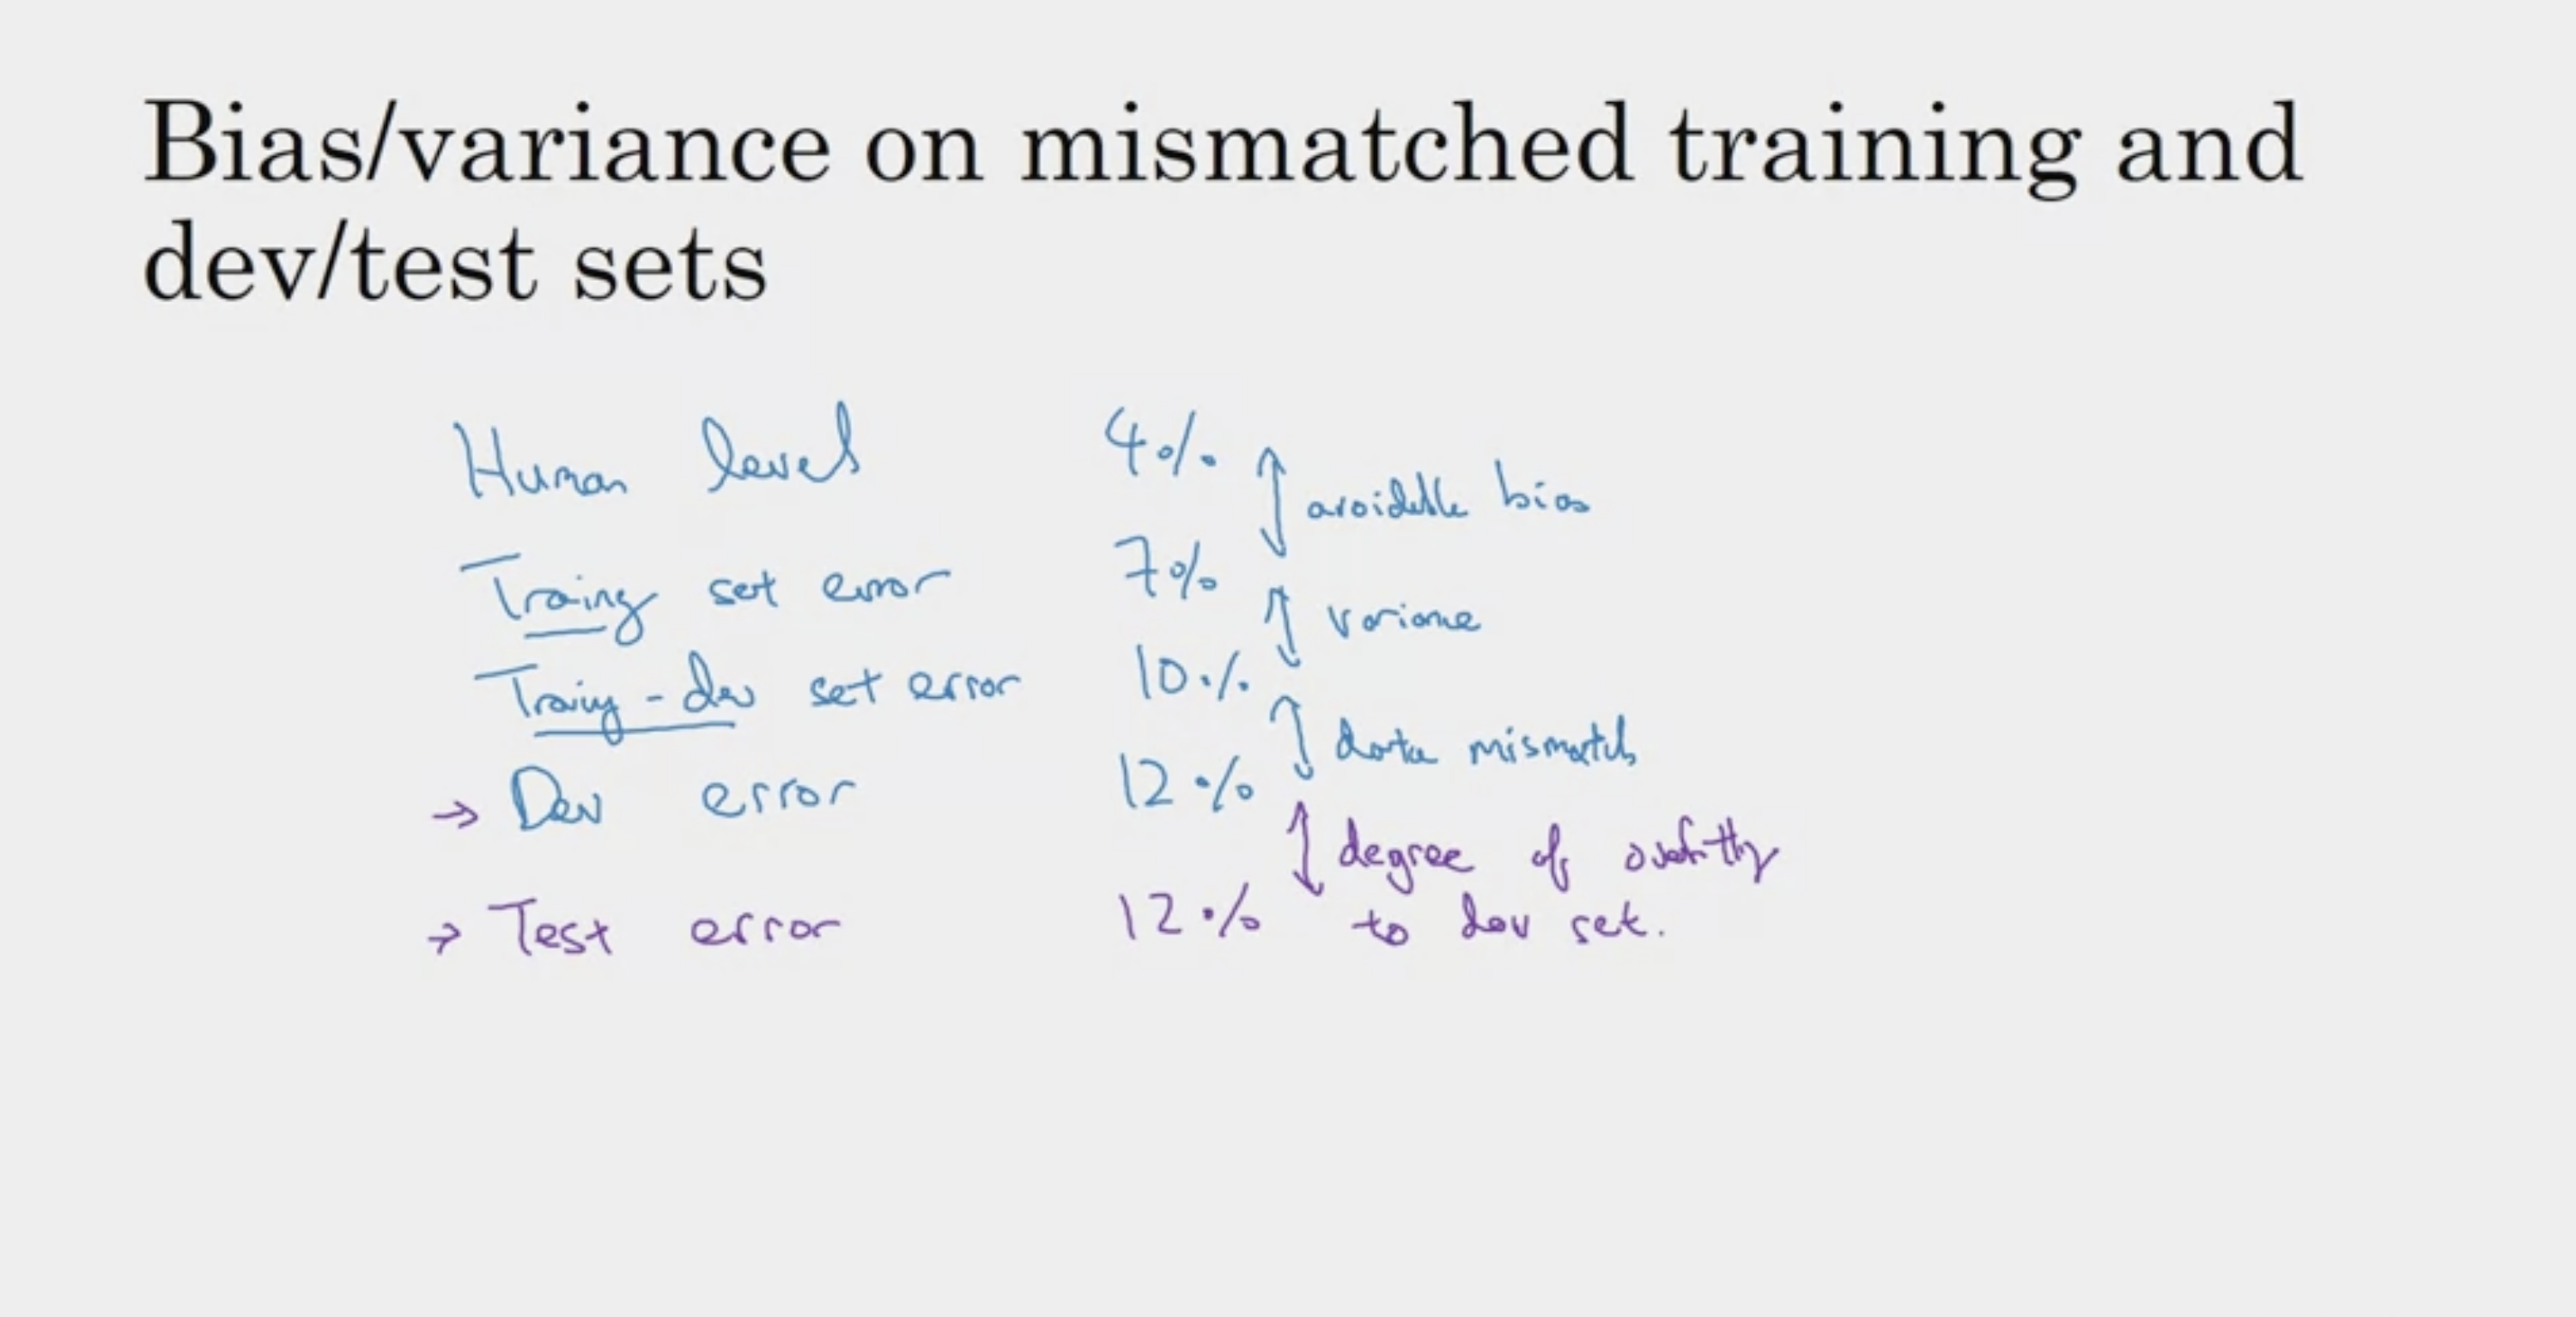 Bias/variance on mismatched training and
dev/test sets
Human level 4%
avoidable bias
Training set error 7%
variance
Training-dev set error 10%
data mismatch
→ Dev error 12%
degree of overfitting
to dev set.
→ Test error 12%